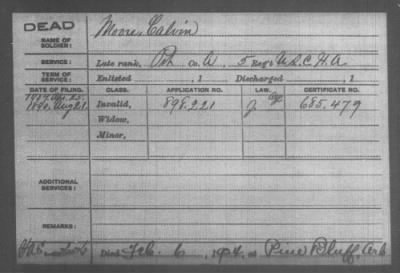 DEAD
NAME OF SOLDIER: Moore, Calvin
SERVICE: Late rank, Pvt, Co. A, 5 Reg't U.S.C.H.A
TERM OF SERVICE: Enlisted , 1 Discharged , 1
DATE OF FILING. CLASS. APPLICATION NO. LAW. CERTIFICATE NO.
1890, Aug 21 Invalid, 898.221 J 685.479
Widow,
Minor,
ADDITIONAL SERVICES:
REMARKS:
Died Feb. 6, 1924, at Pine Bluff, Ark